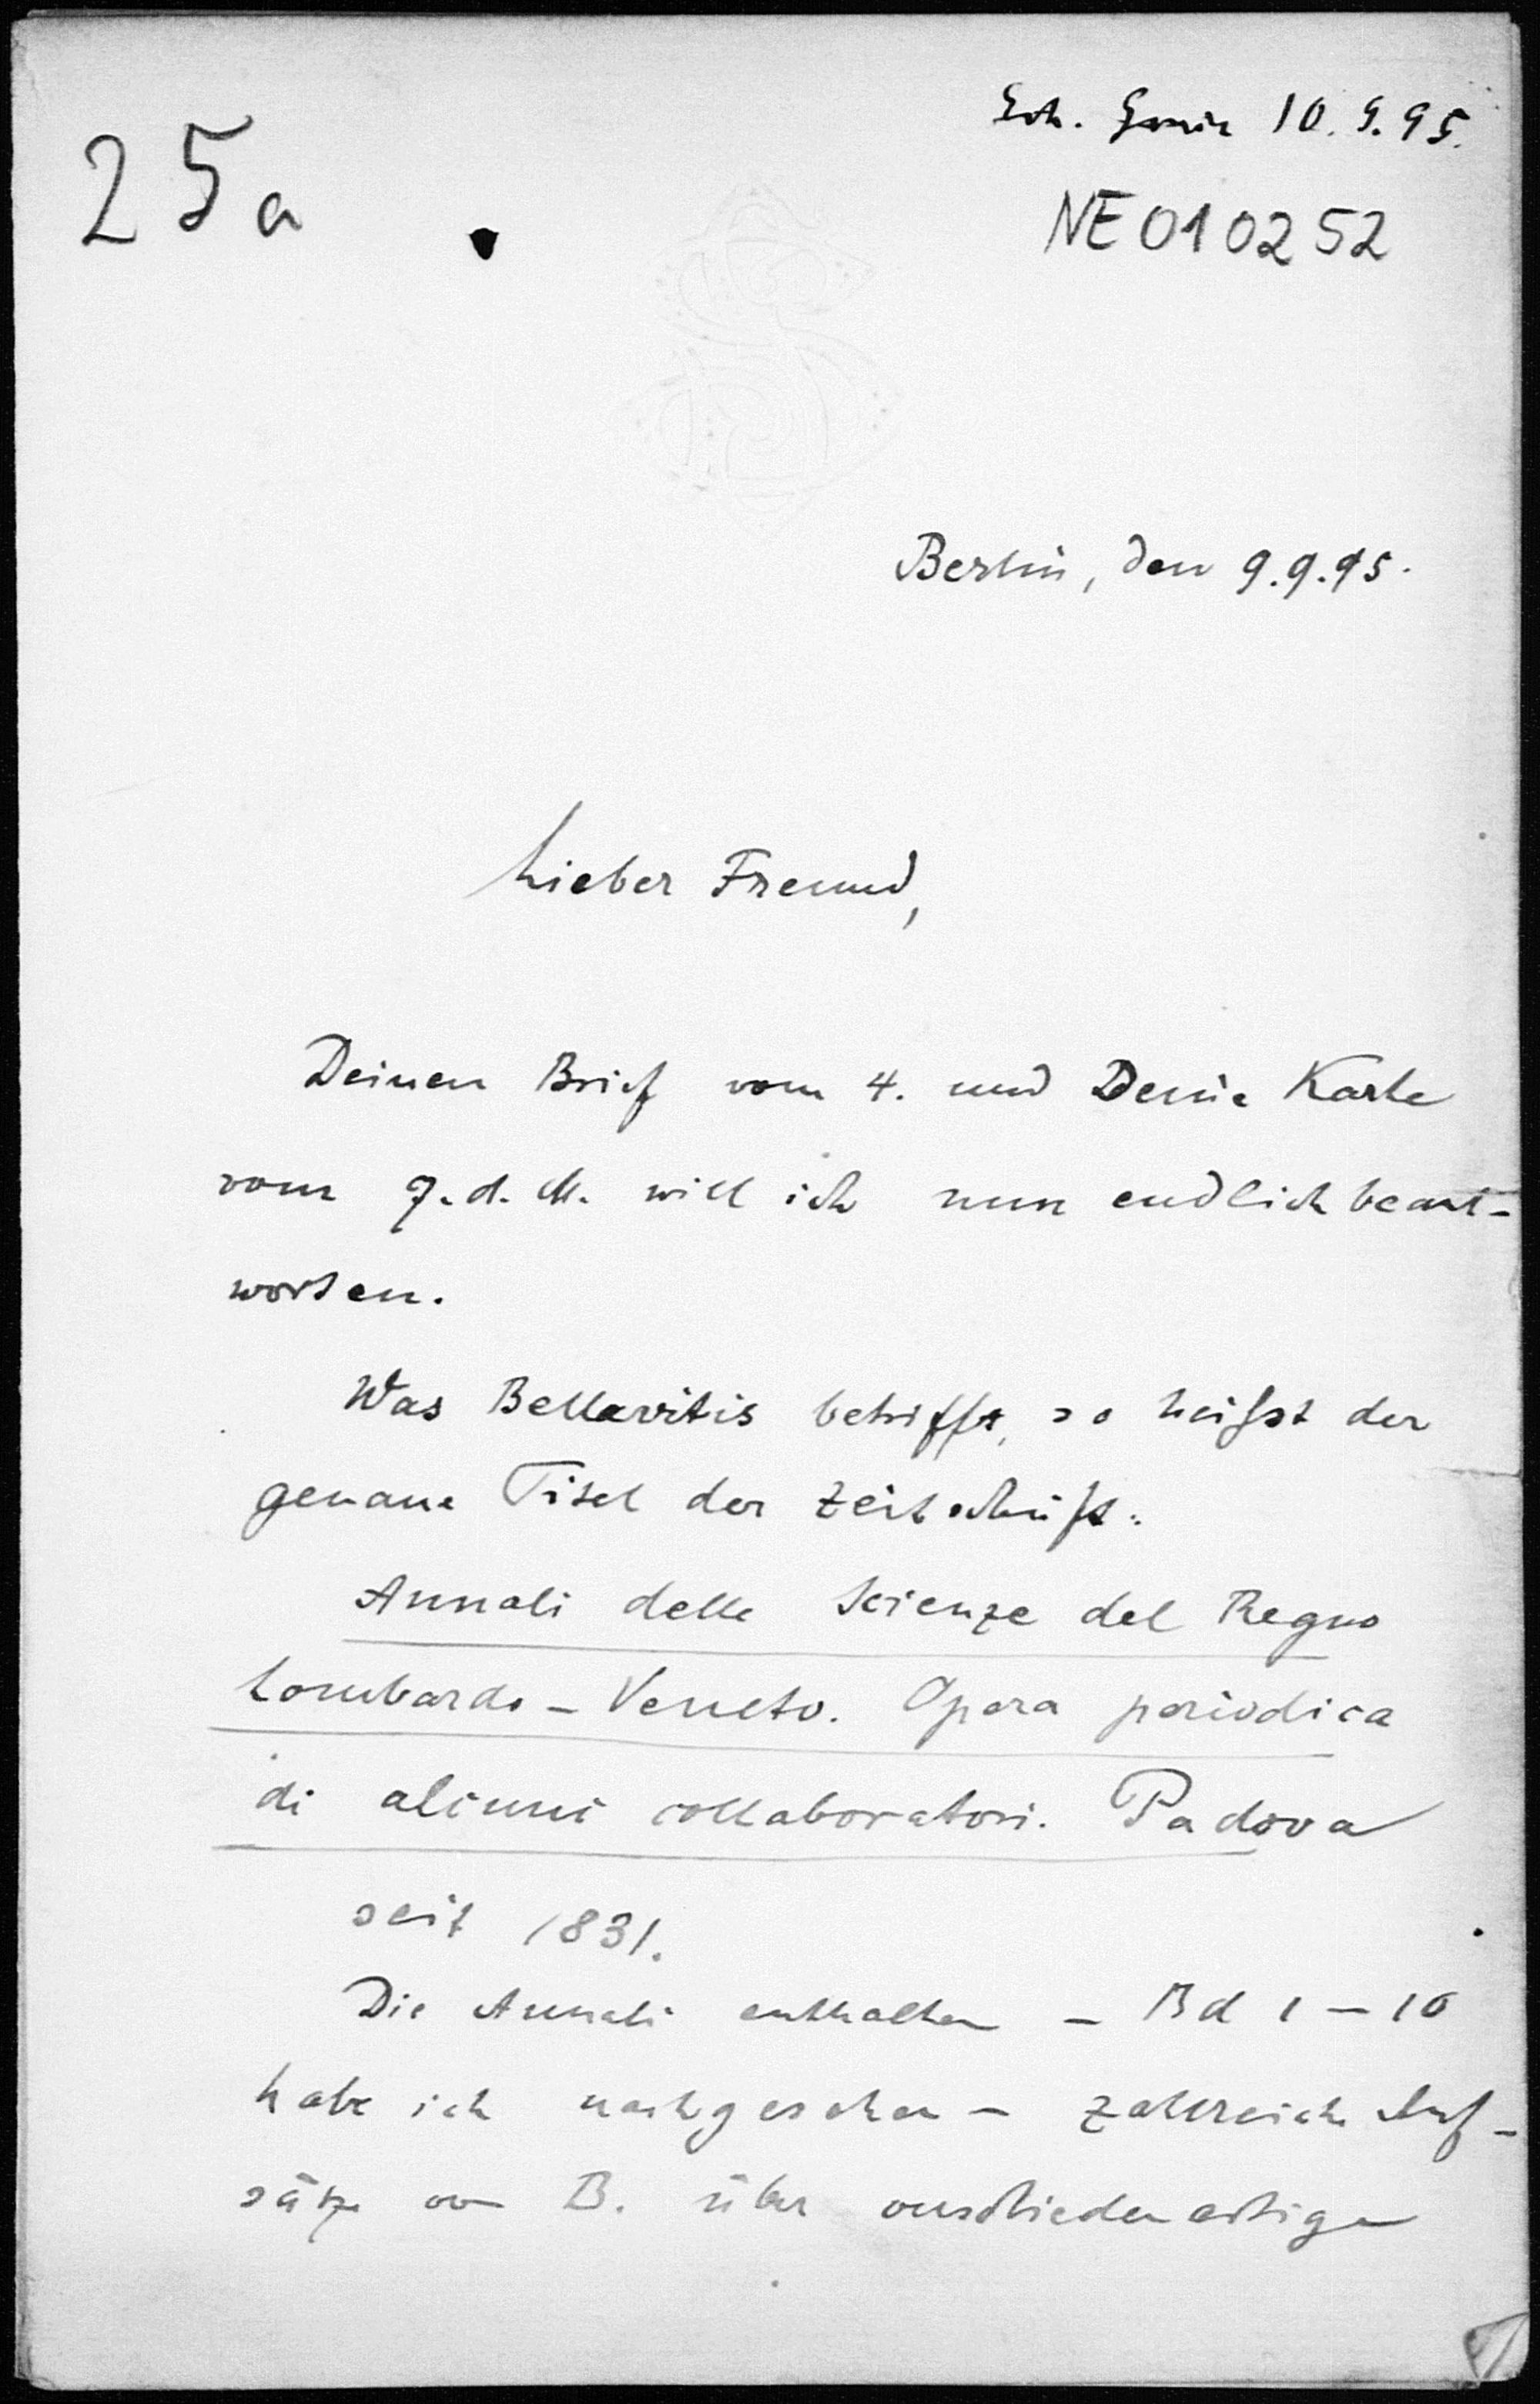 Erh. 10. 9. 95.
25a
NE010252
Berlin, den 9.9.95.
Lieber Freund,
Deinen Brief vom 4. und Deine Karte
vom 7. d. M. will ich nun endlich beant-
worten.
Was Bellavitis betrifft, so heißst der
genaue Titel der Zeitschrift:
Annali delle Scienze del Regno
Lombardo-Veneto. Opera periodica
di alcuni collaboratori. Padova
seit 1831.
Die Annali enthalten – Bd 1–10
habe ich nachgesehen – zahlreiche Auf-
sätze von B. über verschiedenartige